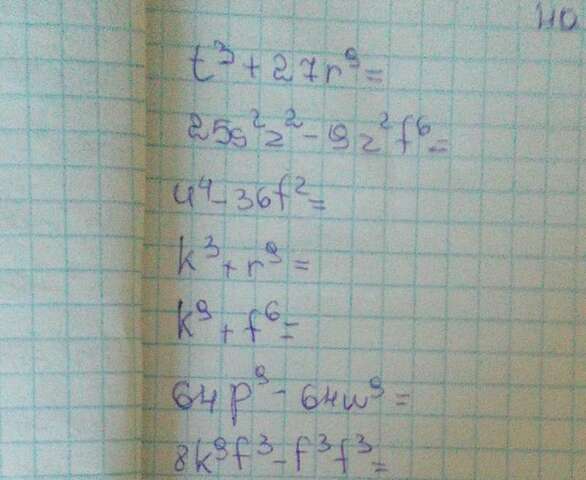 НО
t³ + 27r⁹ =
25s²z² - 9z²f⁶ =
u⁴ - 36f² =
k³ + r⁹ =
k⁹ + f⁶ =
64p⁹ - 64w⁹ =
8k⁹f³ - f³f³ =